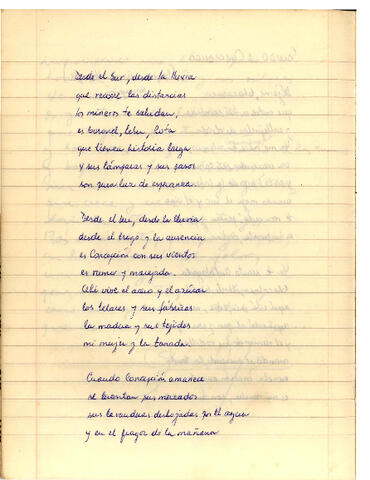 Desde el Sur, desde la lluvia
que recorre las distancias
los mineros te saludan,
es Coronel, Lebu, Lota
que tienen historia larga
y sus lámparas y sus pasos
son luz de esperanza.
Desde el sur, desde la lluvia
desde el trigo y la ausencia
es Concepción con sus vientos
es rumor y marejada.
Allí vive el acero y el azúcar
los telares y sus fábricas
la madera y sus tejidos
mi mujer y la
Cuando Concepción amanece
se levantan sus mercados
sus deshojadas por el agua
y en el fragor de la mañana